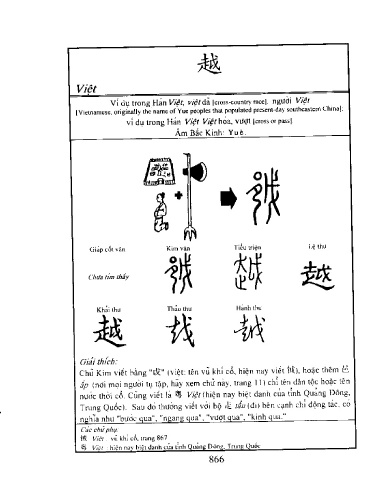 越
Việt
Ví dụ trong Hán Việt, việt dã [cross-country race], người Việt
[Vietnamese, originally the name of Yue peoples that populated present-day southeastern China];
ví dụ trong Hán Việt Việt hóa, vượt [cross or pass]
Âm Bắc Kinh: Yuè.
Giáp cốt văn Kim văn Tiểu triện Lệ thư
Chưa tìm thấy
越
Khải thư Thảo thư Hành thư
越 越 越
Giải thích:
Chữ Kim viết bằng "戉" (việt: tên vũ khí cổ, hiện nay viết 鉞), hoặc thêm 邑
ấp (nơi mọi người tụ tập, hãy xem chữ này, trang 11) chỉ tên dân tộc hoặc tên
nước thời cổ. Cũng viết là 粵 Việt (hiện nay biệt danh của tỉnh Quảng Đông,
Trung Quốc). Sau đó thường viết với bộ 走 tẩu (đi) bên cạnh chỉ động tác, có
nghĩa như "bước qua", "ngang qua", "vượt qua", "kinh qua."
Các chữ phụ
鉞 Việt : vũ khí cổ, trang 867
粵 Việt : hiện nay biệt danh của tỉnh Quảng Đông, Trung Quốc
866